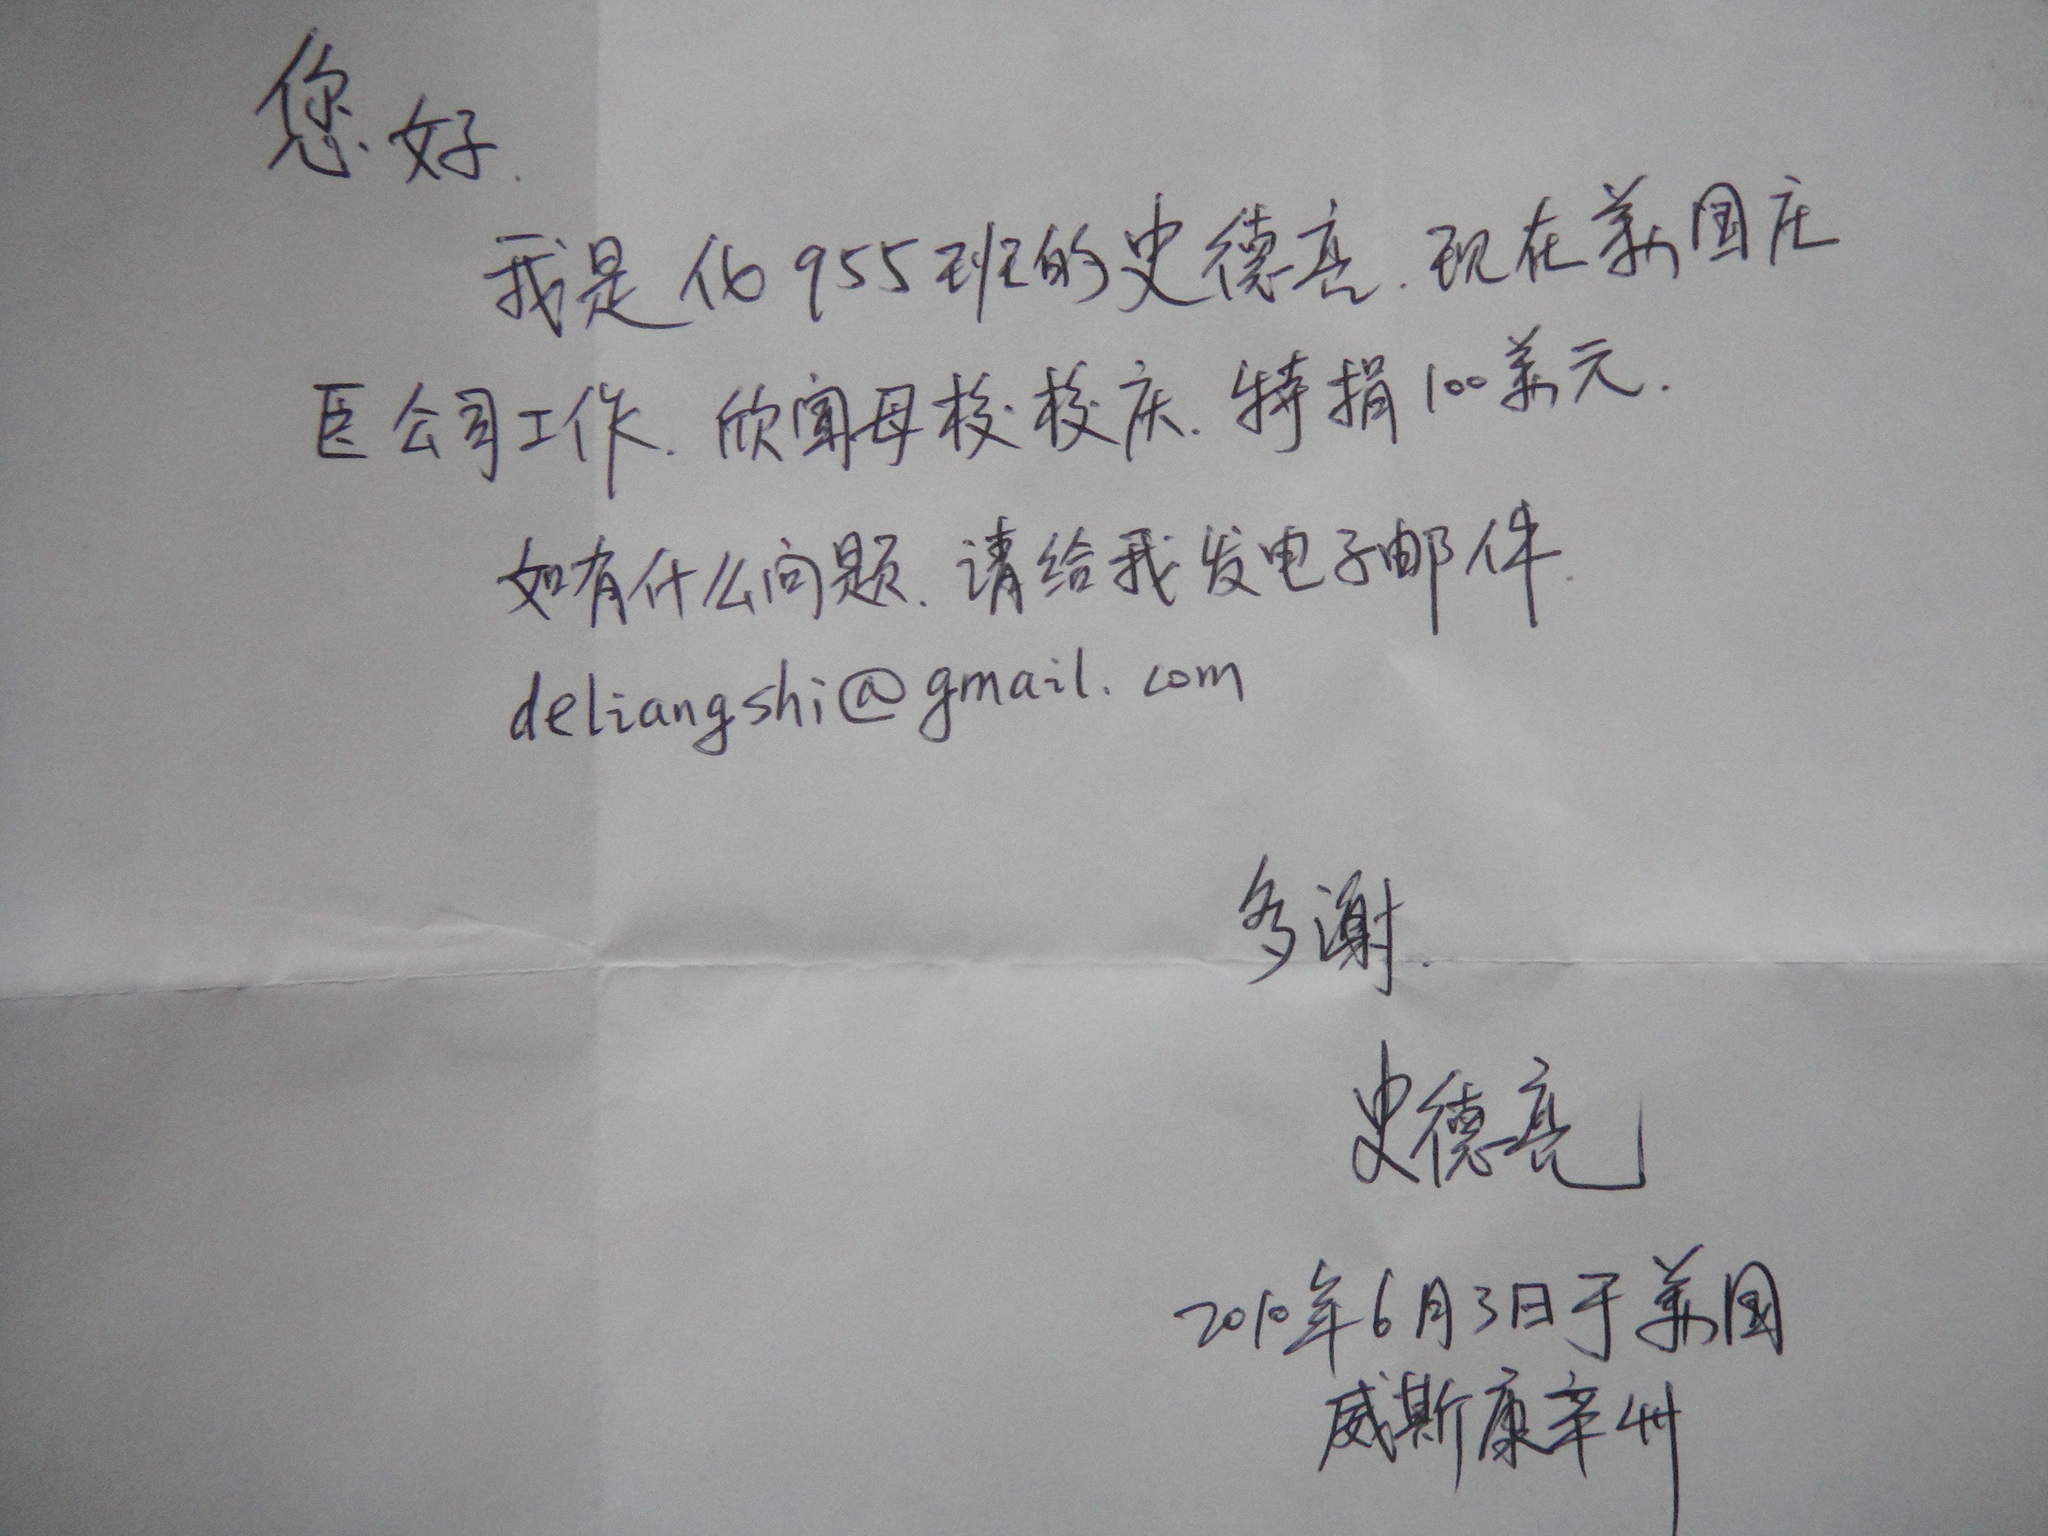 您好.
我是化955班的史德亮.现在美国庄
臣公司工作.欣闻母校校庆.特捐100美元.
如有什么问题.请给我发电子邮件.
deliangshi@gmail.com
多谢.
史德亮
2010年6月3日于美国
威斯康辛州